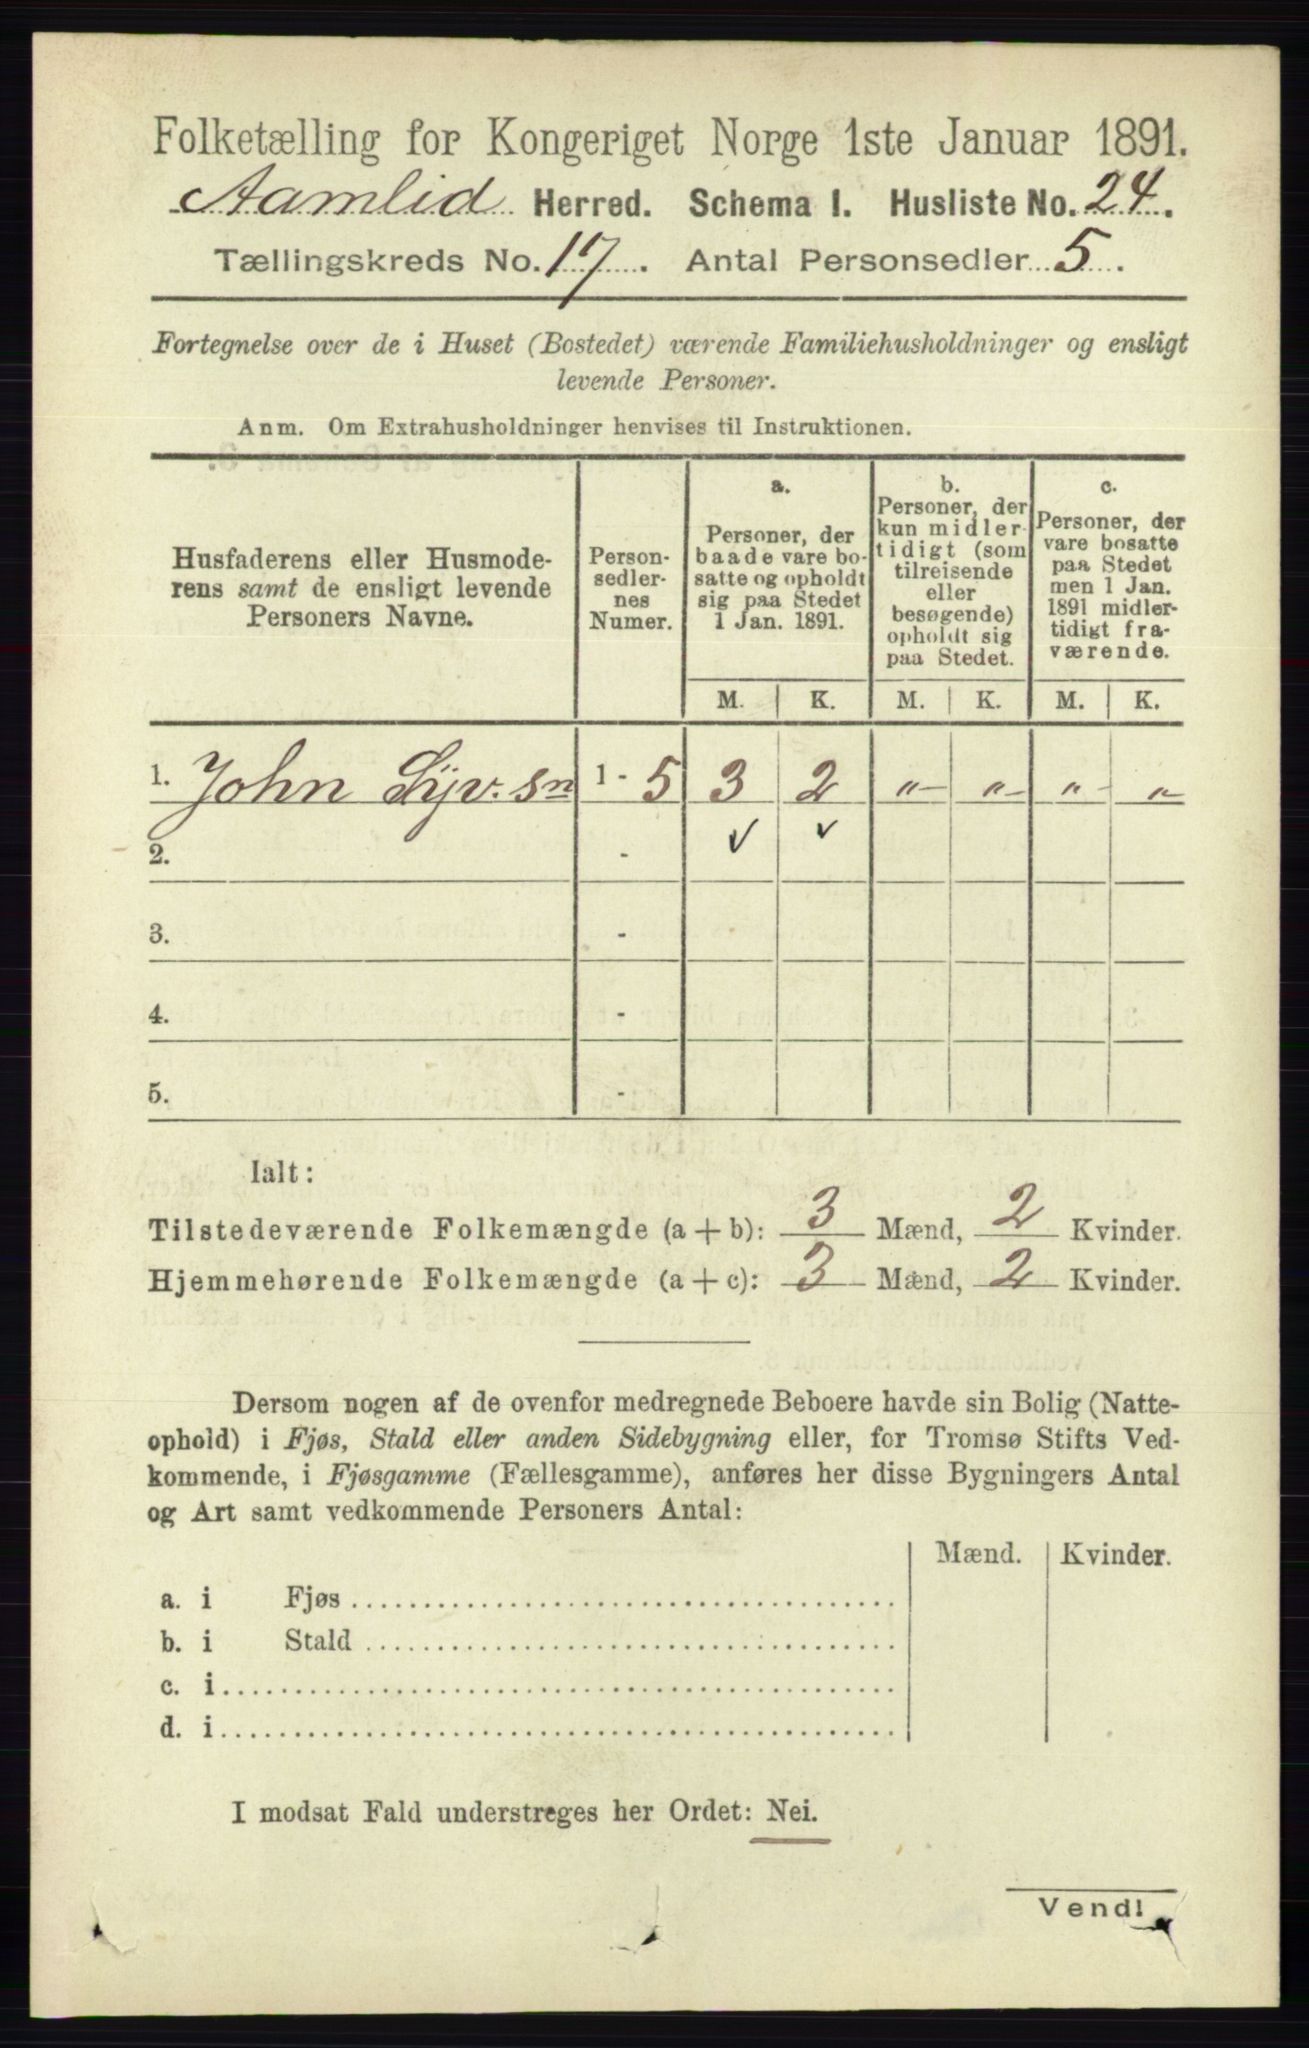 Folketælling for Kongeriget Norge 1ste Januar 1891.
Aamlid Herred. Schema I. Husliste No. 24.
Tællingskreds No. 17. Antal Personsedler 5.
Fortegnelse over de i Huset (Bostedet) værende Familiehusholdninger og ensligt
levende Personer.
Anm. Om Extrahusholdninger henvises til Instruktionen.
Husfaderens eller Husmode-
rens samt de ensligt levende
Personers Navne.
Person-
sedler-
nes
Numer.
a.
Personer, der
baade vare bo-
satte og opholdt
sig paa Stedet
1 Jan. 1891.
b.
Personer, der
kun midler-
tidigt (som
tilreisende
eller
besøgende)
opholdt sig
paa Stedet.
c.
Personer, der
vare bosatte
paa Stedet
men 1 Jan.
1891 midler-
tidigt fra-
værende.
M. K. M. K. M. K.
1. John Sijv. sn 1 - 5 3 2 „ „ „ „
✓ ✓
2. -
3. -
4. -
5. -
Ialt:
Tilstedeværende Folkemængde (a + b): 3 Mænd, 2 Kvinder.
Hjemmehørende Folkemængde (a + c): 3 Mænd, 2 Kvinder.
Dersom nogen af de ovenfor medregnede Beboere havde sin Bolig (Natte-
ophold) i Fjøs, Stald eller anden Sidebygning eller, for Tromsø Stifts Ved-
kommende, i Fjøsgamme (Fællesgamme), anføres her disse Bygningers Antal
og Art samt vedkommende Personers Antal:
Mænd. Kvinder.
a. i Fjøs
b. i Stald
c. i
d. i
I modsat Fald understreges her Ordet: Nei.
Vend!